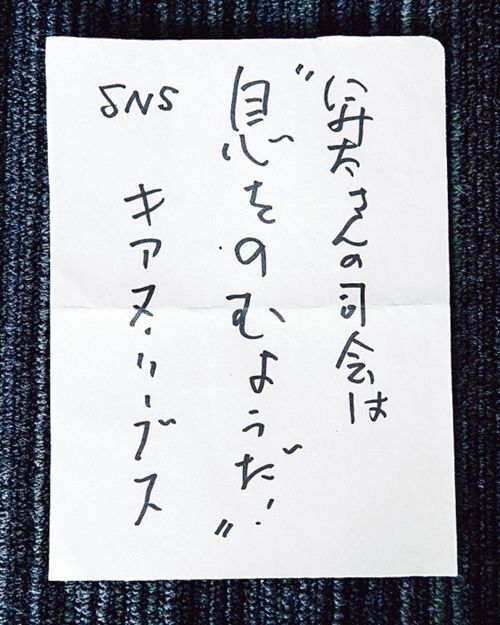 さんの司会は
〝息をのむようだ!〟
SNS
キアヌ・リーブス